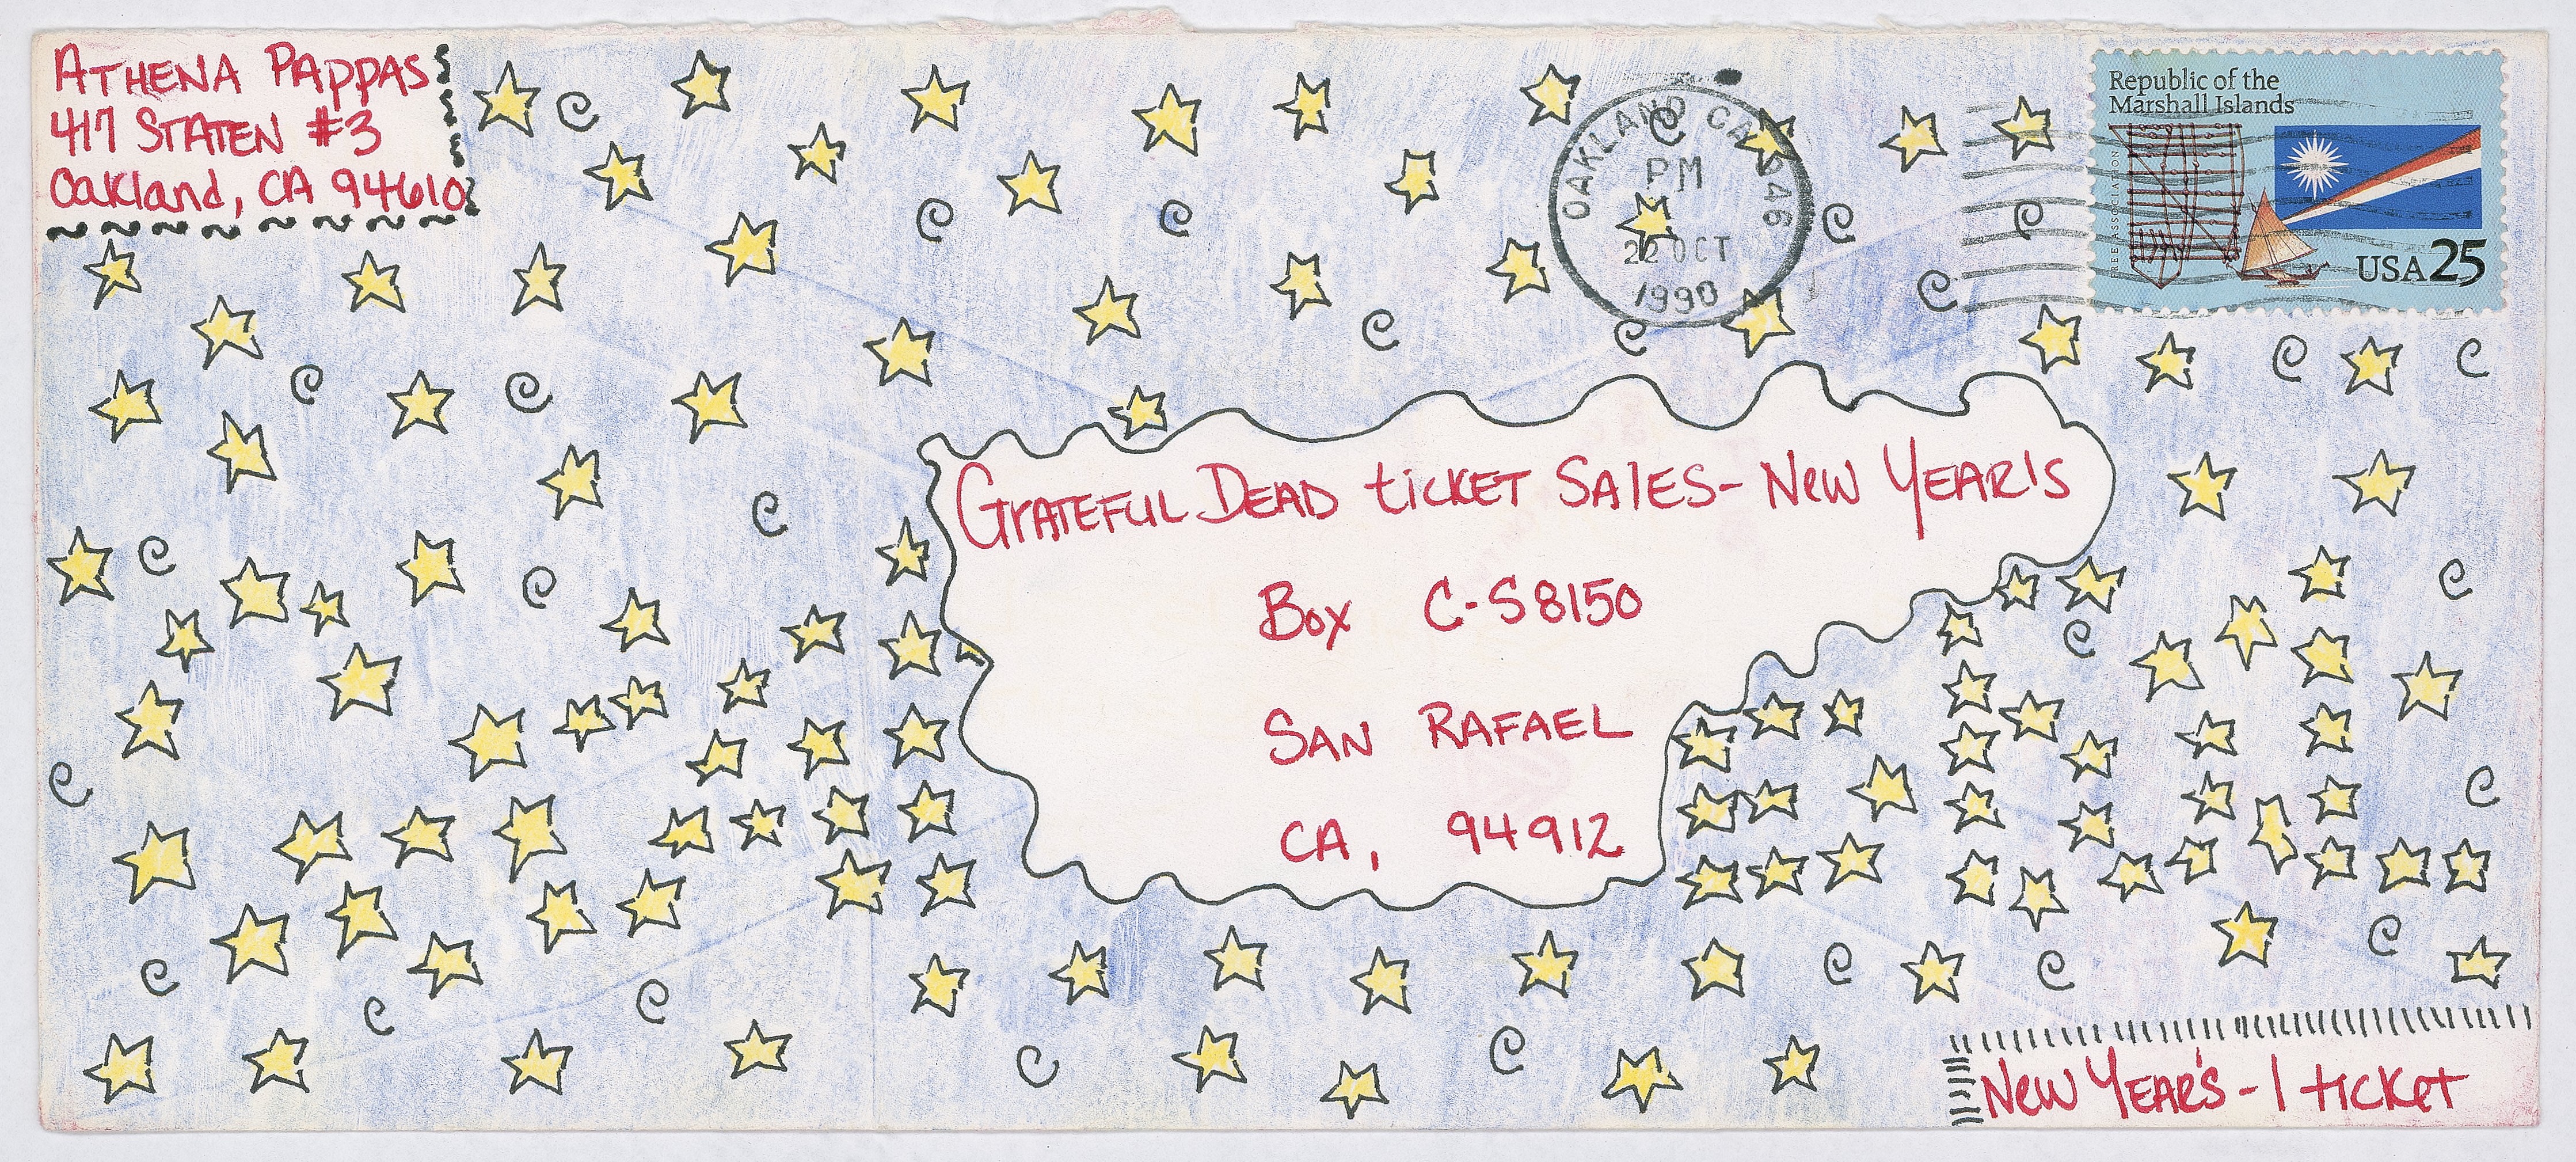 ATHENA PAPPAS
417 STATEN #3
Oakland, CA 94610
OAKLAND CA 946
PM
22 OCT
1990
Republic of the
Marshall Islands
FREE ASSOCIATION
USA 25
GRATEFUL DEAD tiCKET SAlES- NeW YEAR'S
Box C-S8150
SAN RAFAEL
CA, 94912
NeW YEAR'S - 1 tiCKet